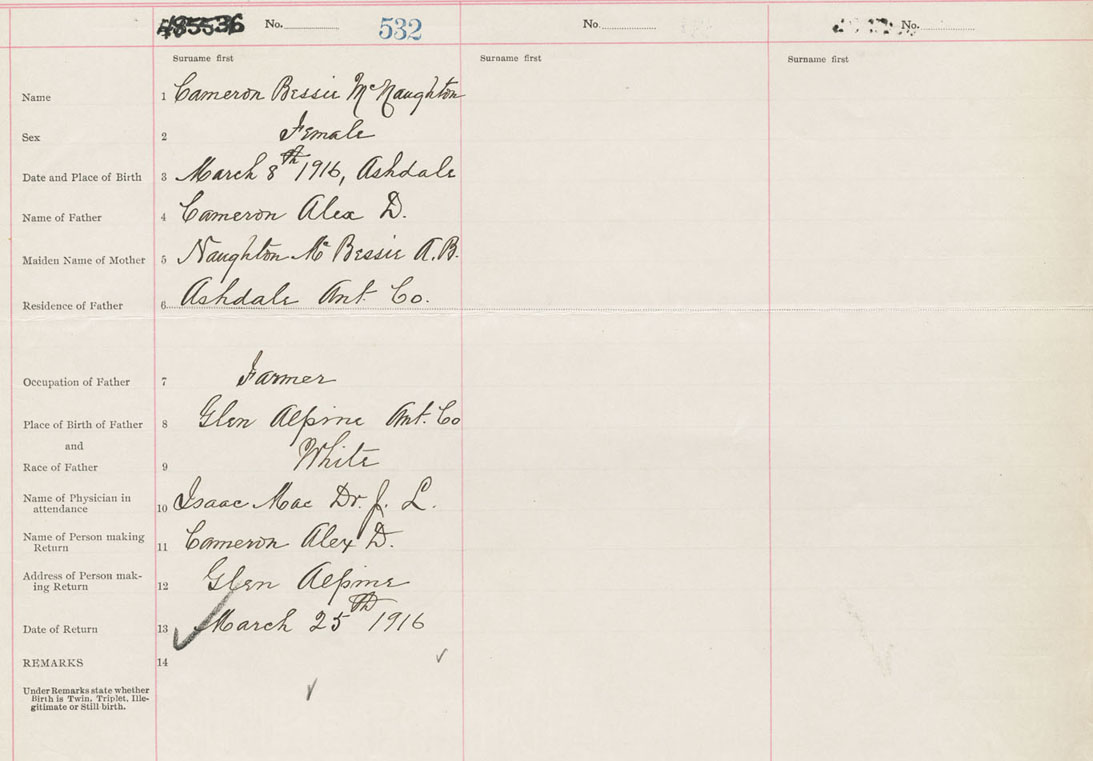 No. 532 No. No.
Surname first Surname first Surname first
Name 1 Cameron Bessie McNaughton
Sex 2 Female
Date and Place of Birth 3 March 8th 1916, Ashdale
Name of Father 4 Cameron Alex D.
Maiden Name of Mother 5 Naughton Mc Bessie A.B.
Residence of Father 6 Ashdale Ant. Co.
Occupation of Father 7 Farmer
Place of Birth of Father 8 Glen Alpine Ant. Co
and
Race of Father 9 White
Name of Physician in
attendance 10 Isaac Mac Dr. J. L.
Name of Person making
Return 11 Cameron Alex D.
Address of Person mak-
ing Return 12 Glen Alpine
Date of Return 13 March 25th 1916
REMARKS 14
Under Remarks state whether
Birth is Twin, Triplet, Ille-
gitimate or Still birth.